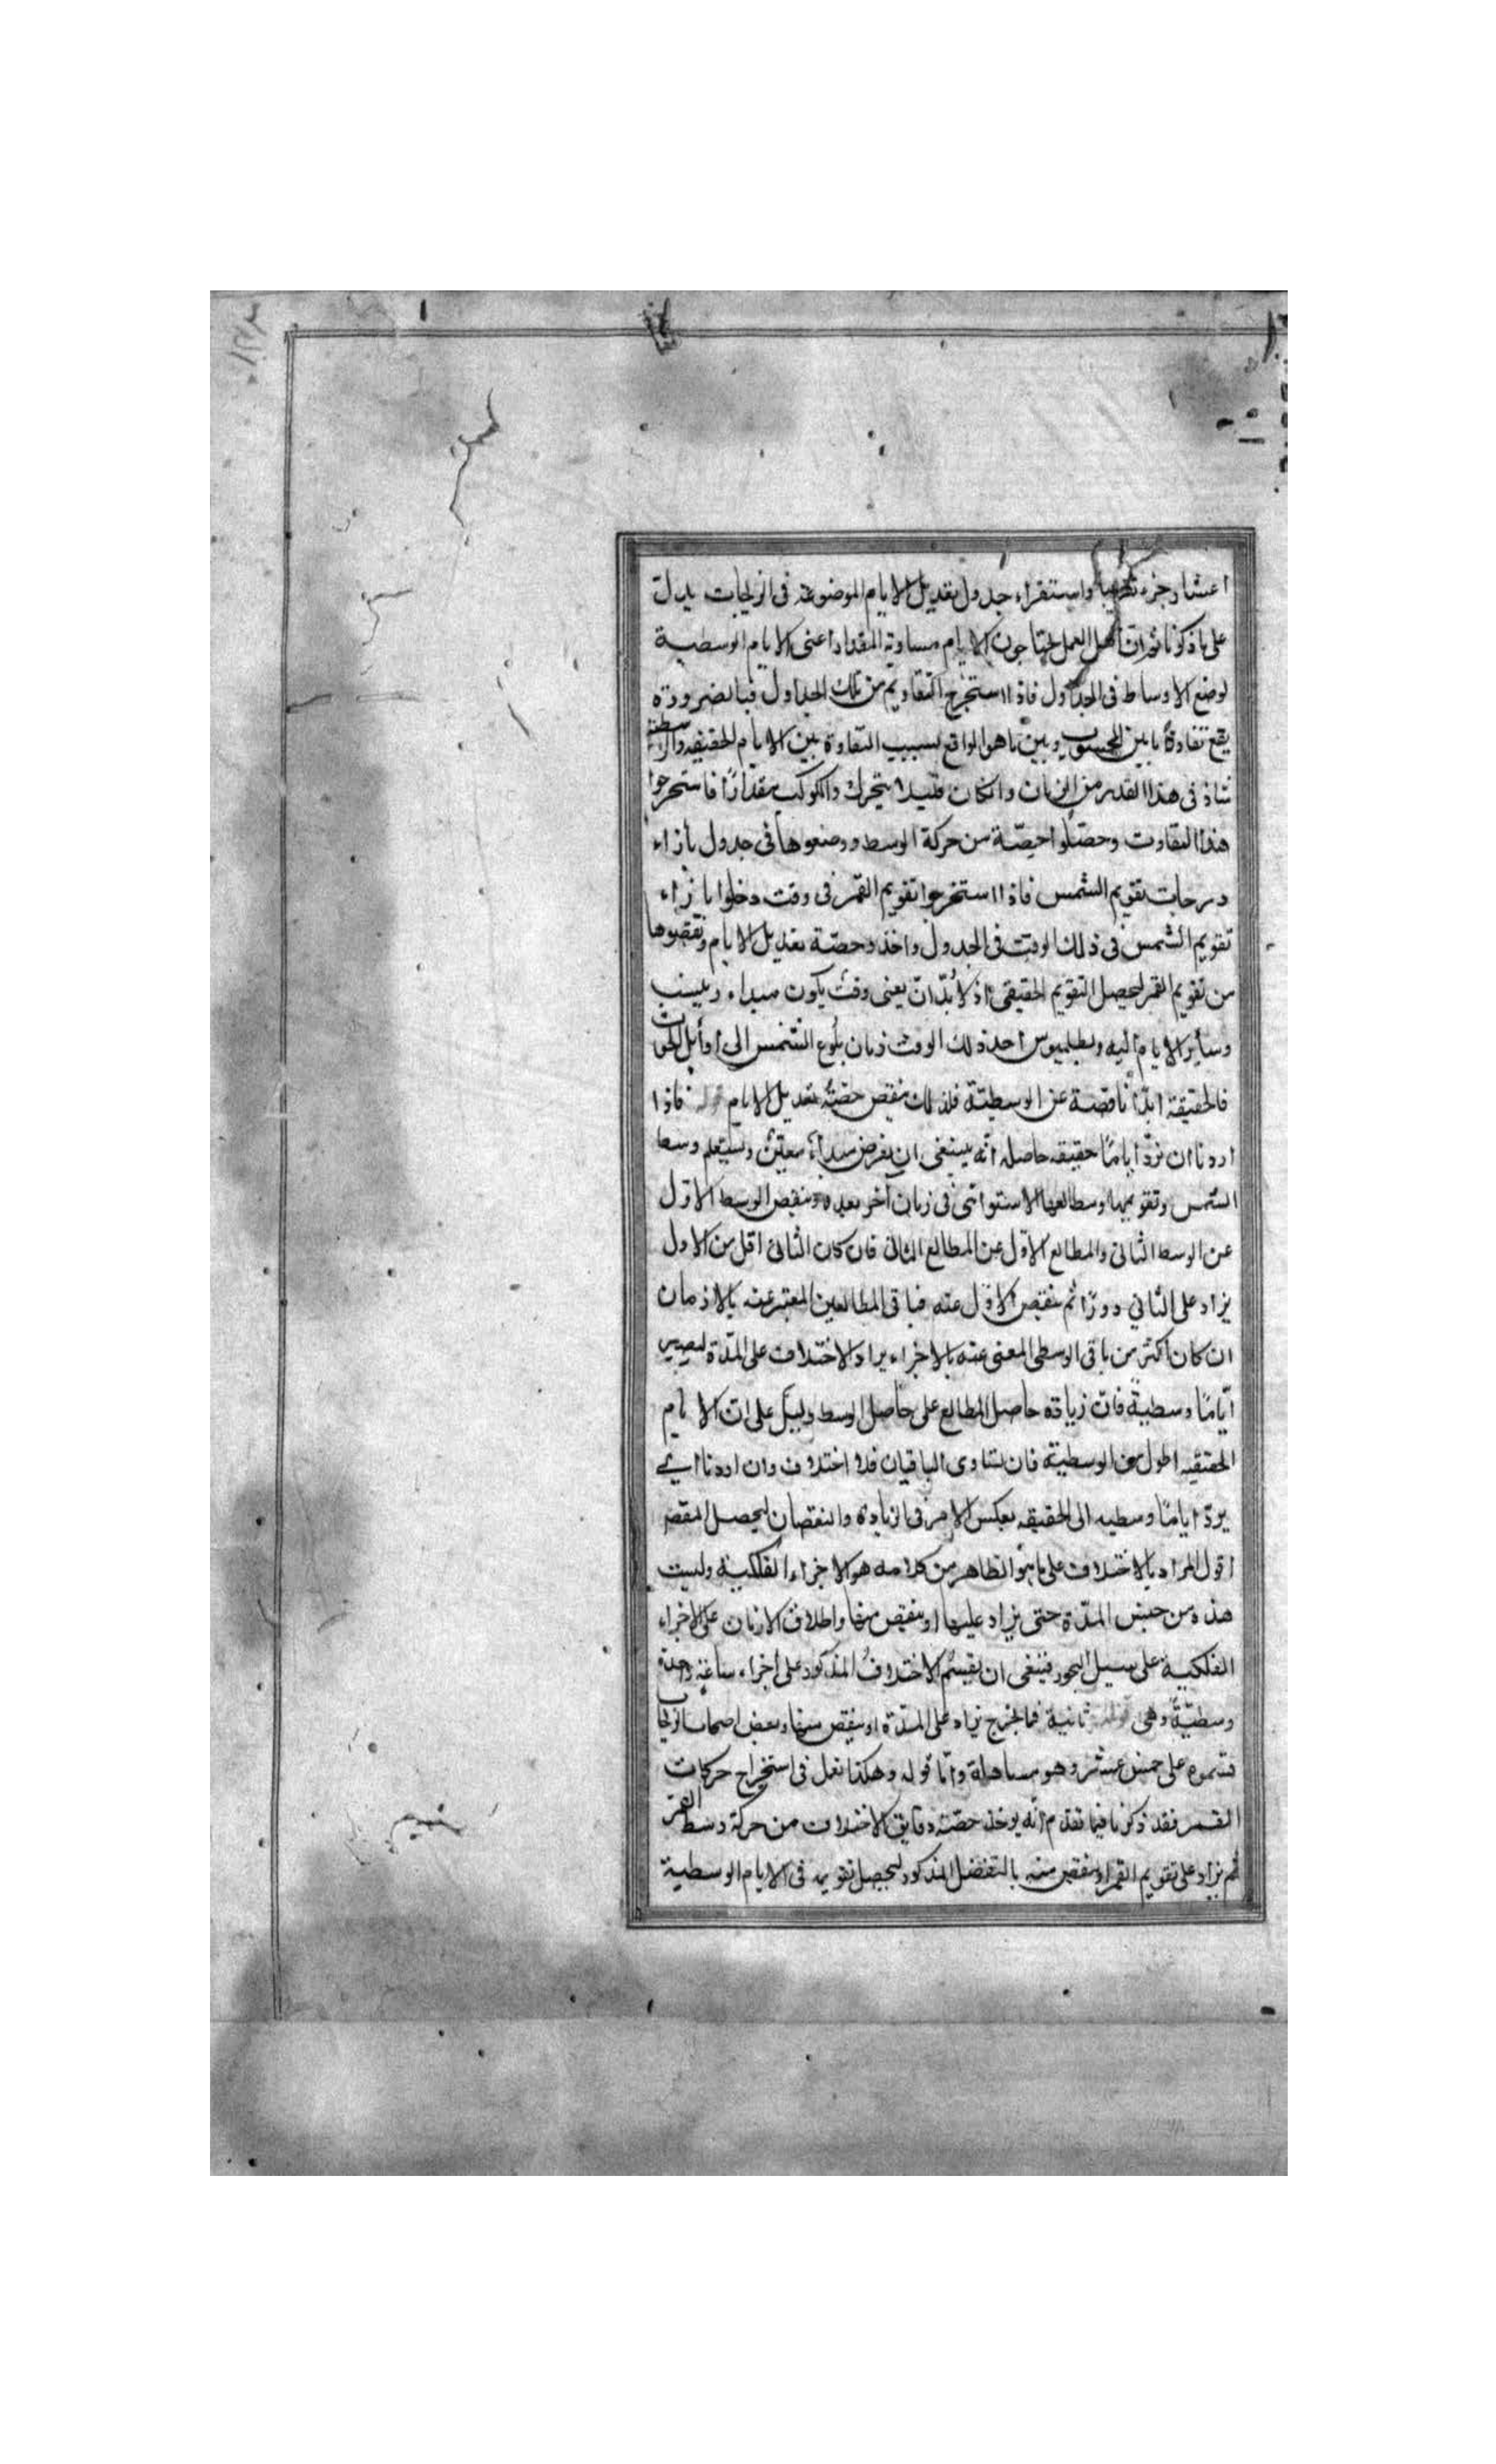 اعشار جزء تقريبا واستقراء جدول تعديل الايام الموضوعة فى الزيجات يدل
على ما ذكرنا ثم ان اهل العمل يحتاجون الايام مساوية المقدار اعنى الايام الوسطية
لوضع الاوساط فى الجداول فاذا استخرج التقاويم من تلك الجداول فبالضرورة
يقع تفاوة ما بين المحسوب وبين ما هو الواقع بسبب التفاوة بين الايام الحقيقيه والوسطية
اذ فى هذا القدر من الزمان وان كان قليلا يتحرك الكوكب مقدارًا فاستخرجوا
هذا التفاوت وحصّلوا حصّة من حركة الوسط ووضعوها فى جدول بازاء
درجات تقويم الشمس فاذا استخرجوا تقويم القمر فى وقت دخلوا بازاء
تقويم الشمس فى ذلك الوقت فى الجدول واخذوا حصّة تعديل الايام ونقصوها
من تقويم القمر ليحصل التقويم الحقيقى اذ لا بُدّ ان يعنى وقت يكون مبداء وينسب
وساير الايام اليه وبطلميوس اخذ ذلك الوقت زمان بلوغ الشمس الى اوايل الحوت
فالحقيقة ابدًا ناقصة عن الوسطيّة فلذلك ينقص حصّة تعديل الايام فاذا
اردنا ان نردّ ايامًا حقيقه حاصله انّه ينبغى ان يفرض مبداء معيّن ويستعلم وسط
الشمس وتقويمها ومطالعها الاستوائى فى زمان اخر بعده وينقص الوسط الاوّل
عن الوسط الثانى والمطالع الاوّل عن المطالع الثانى فان كان الثانى اقل من الاول
يزاد على الثاني دورًا ثم ينقص الاوّل عنه فباقى المطالعين المعبّر عنه بالازمان
ان كان اكثر من باقى الوسطى المعنى عنه بالاجزاء يزاد الاختلاف على المدّة ليصير
ايّامًا وسطيةً فان زيادة حاصل المطالع على حاصل الوسط دليل على ان الايام
الحقيقيه اطول من الوسطية فان تساوى الباقيان فلا اختلاف وان اردنا ان
يردّ ايامًا وسطيه الى الحقيقه بعكس الامر فى الزيادة والنقصان ليحصل المقصد
اقول المراد بالاختلاف على ما هو الظاهر من كلامه هو الاجزاء الفلكية وليست
هذه من جنس المدّة حتى يزاد عليها او ينقص منها واطلاق الازمان على الاجزاء
الفلكية على سبيل التجوز فينبغى ان يقسم الاختلافُ المذكور على اجزاء ساعة واحدة
وسطيّةً وهى ثانية فما يخرج يزاد على المدّة او ينقص منها وبعض اصحاب الزيجات
قسموه على خمس عشر وهو مساهلة وامّا قوله وهكذا نعمل فى استخراج حركات
القمر فقد ذكرنا فيما تقدم انّه يوخذ حصّة دقايق الاختلاف من حركة وسط القمر
ثم يزاد على تقويم القمر او ينقص منه بالتفضل المذكور ليحصل تقويمه فى الايام الوسطية